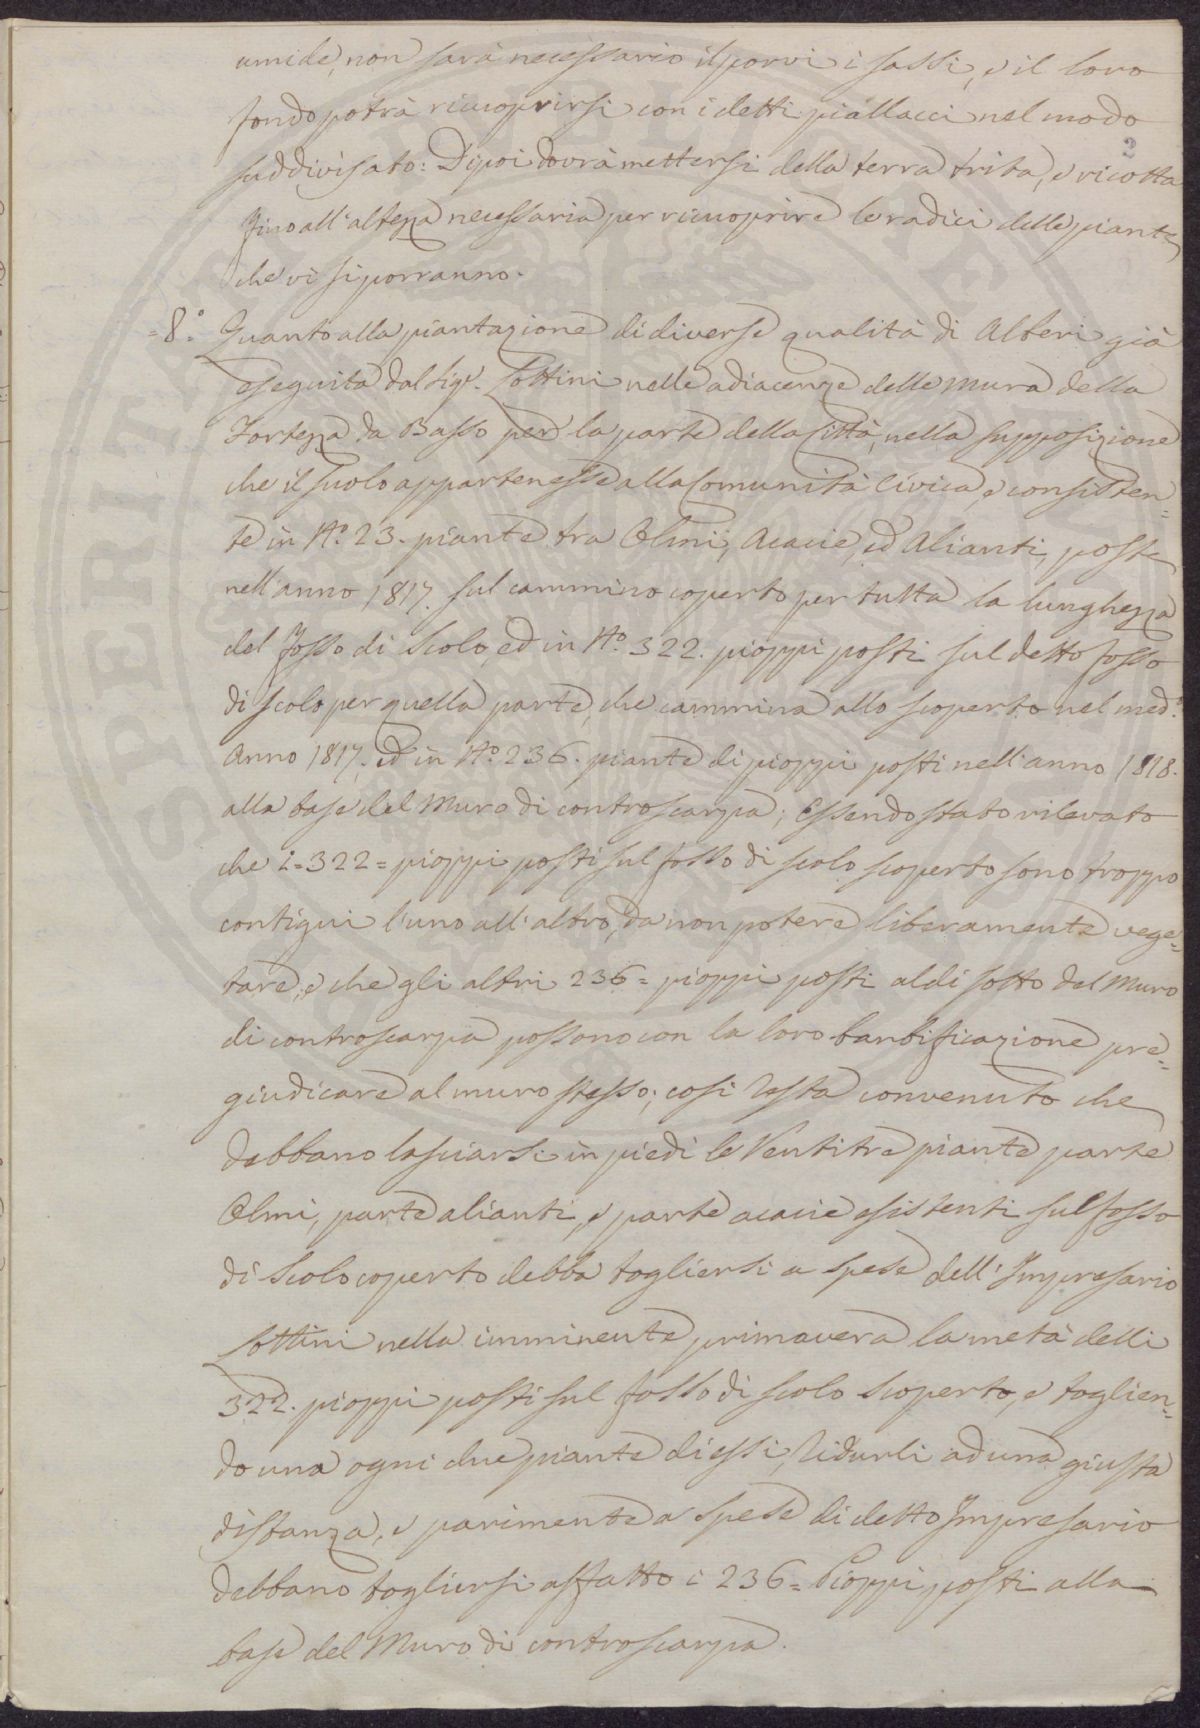 umide, non sarà necessario il porvi i sassi, e il loro
fondo potrà ricuoprirsi con i detti piallacci nel modo
suddivisato: Dipoi dovrà mettersi della terra trita, e ricotta
fino all'altezza necessaria per ricuoprire le radici delle piante
che vi si porranno.
=8.° Quanto alla piantazione di diverse qualità di Alberi già
eseguita dal Sigr. Sottini nelle adiacenze delle Mura della
Fortezza da Basso per la parte della Città, nella supposizione
che il suolo appartenesse alla Comunità Civica, e consisten=
te in No. 23. piante tra Olmi, Acacie, ed Alianti, poste
nell'anno 1817. sul cammino coperto per tutta la lunghezza
del fosso di Scolo, ed in No. 322. pioppi posti sul detto fosso
di scolo per quella parte, che cammina allo scoperto nel med.°
Anno 1817, ed in No. 236. piante di pioppi posti nell'anno 1818.
alla base del Muro di controscarpa; Essendo stato rilevato
che i =322= pioppi posti sul fosso di scolo scoperto sono troppo
contigui l'uno all'altro, da non potere liberamente vege=
tare, e che gli altri 236= pioppi posti al di sotto del Muro
di controscarpa possono con la loro barbificazione pre=
giudicare al muro stesso; così resta convenuto che
debbano lasciarsi in piedi le Ventitre piante parte
Olmi, parte alianti, e parte acacie esistenti sul fosso
di Scolo coperto debba togliersi a spese dell'Impresario
Sottini nella imminente primavera la metà delli
322. pioppi posti sul fosso di scolo scoperto, e toglien=
do una ogni due piante di essi, ridurli ad una giusta
distanza, e parimente a spese di detto Impresario
debbano togliersi affatto i 236= Pioppi posti alla
base del Muro di controscarpa.